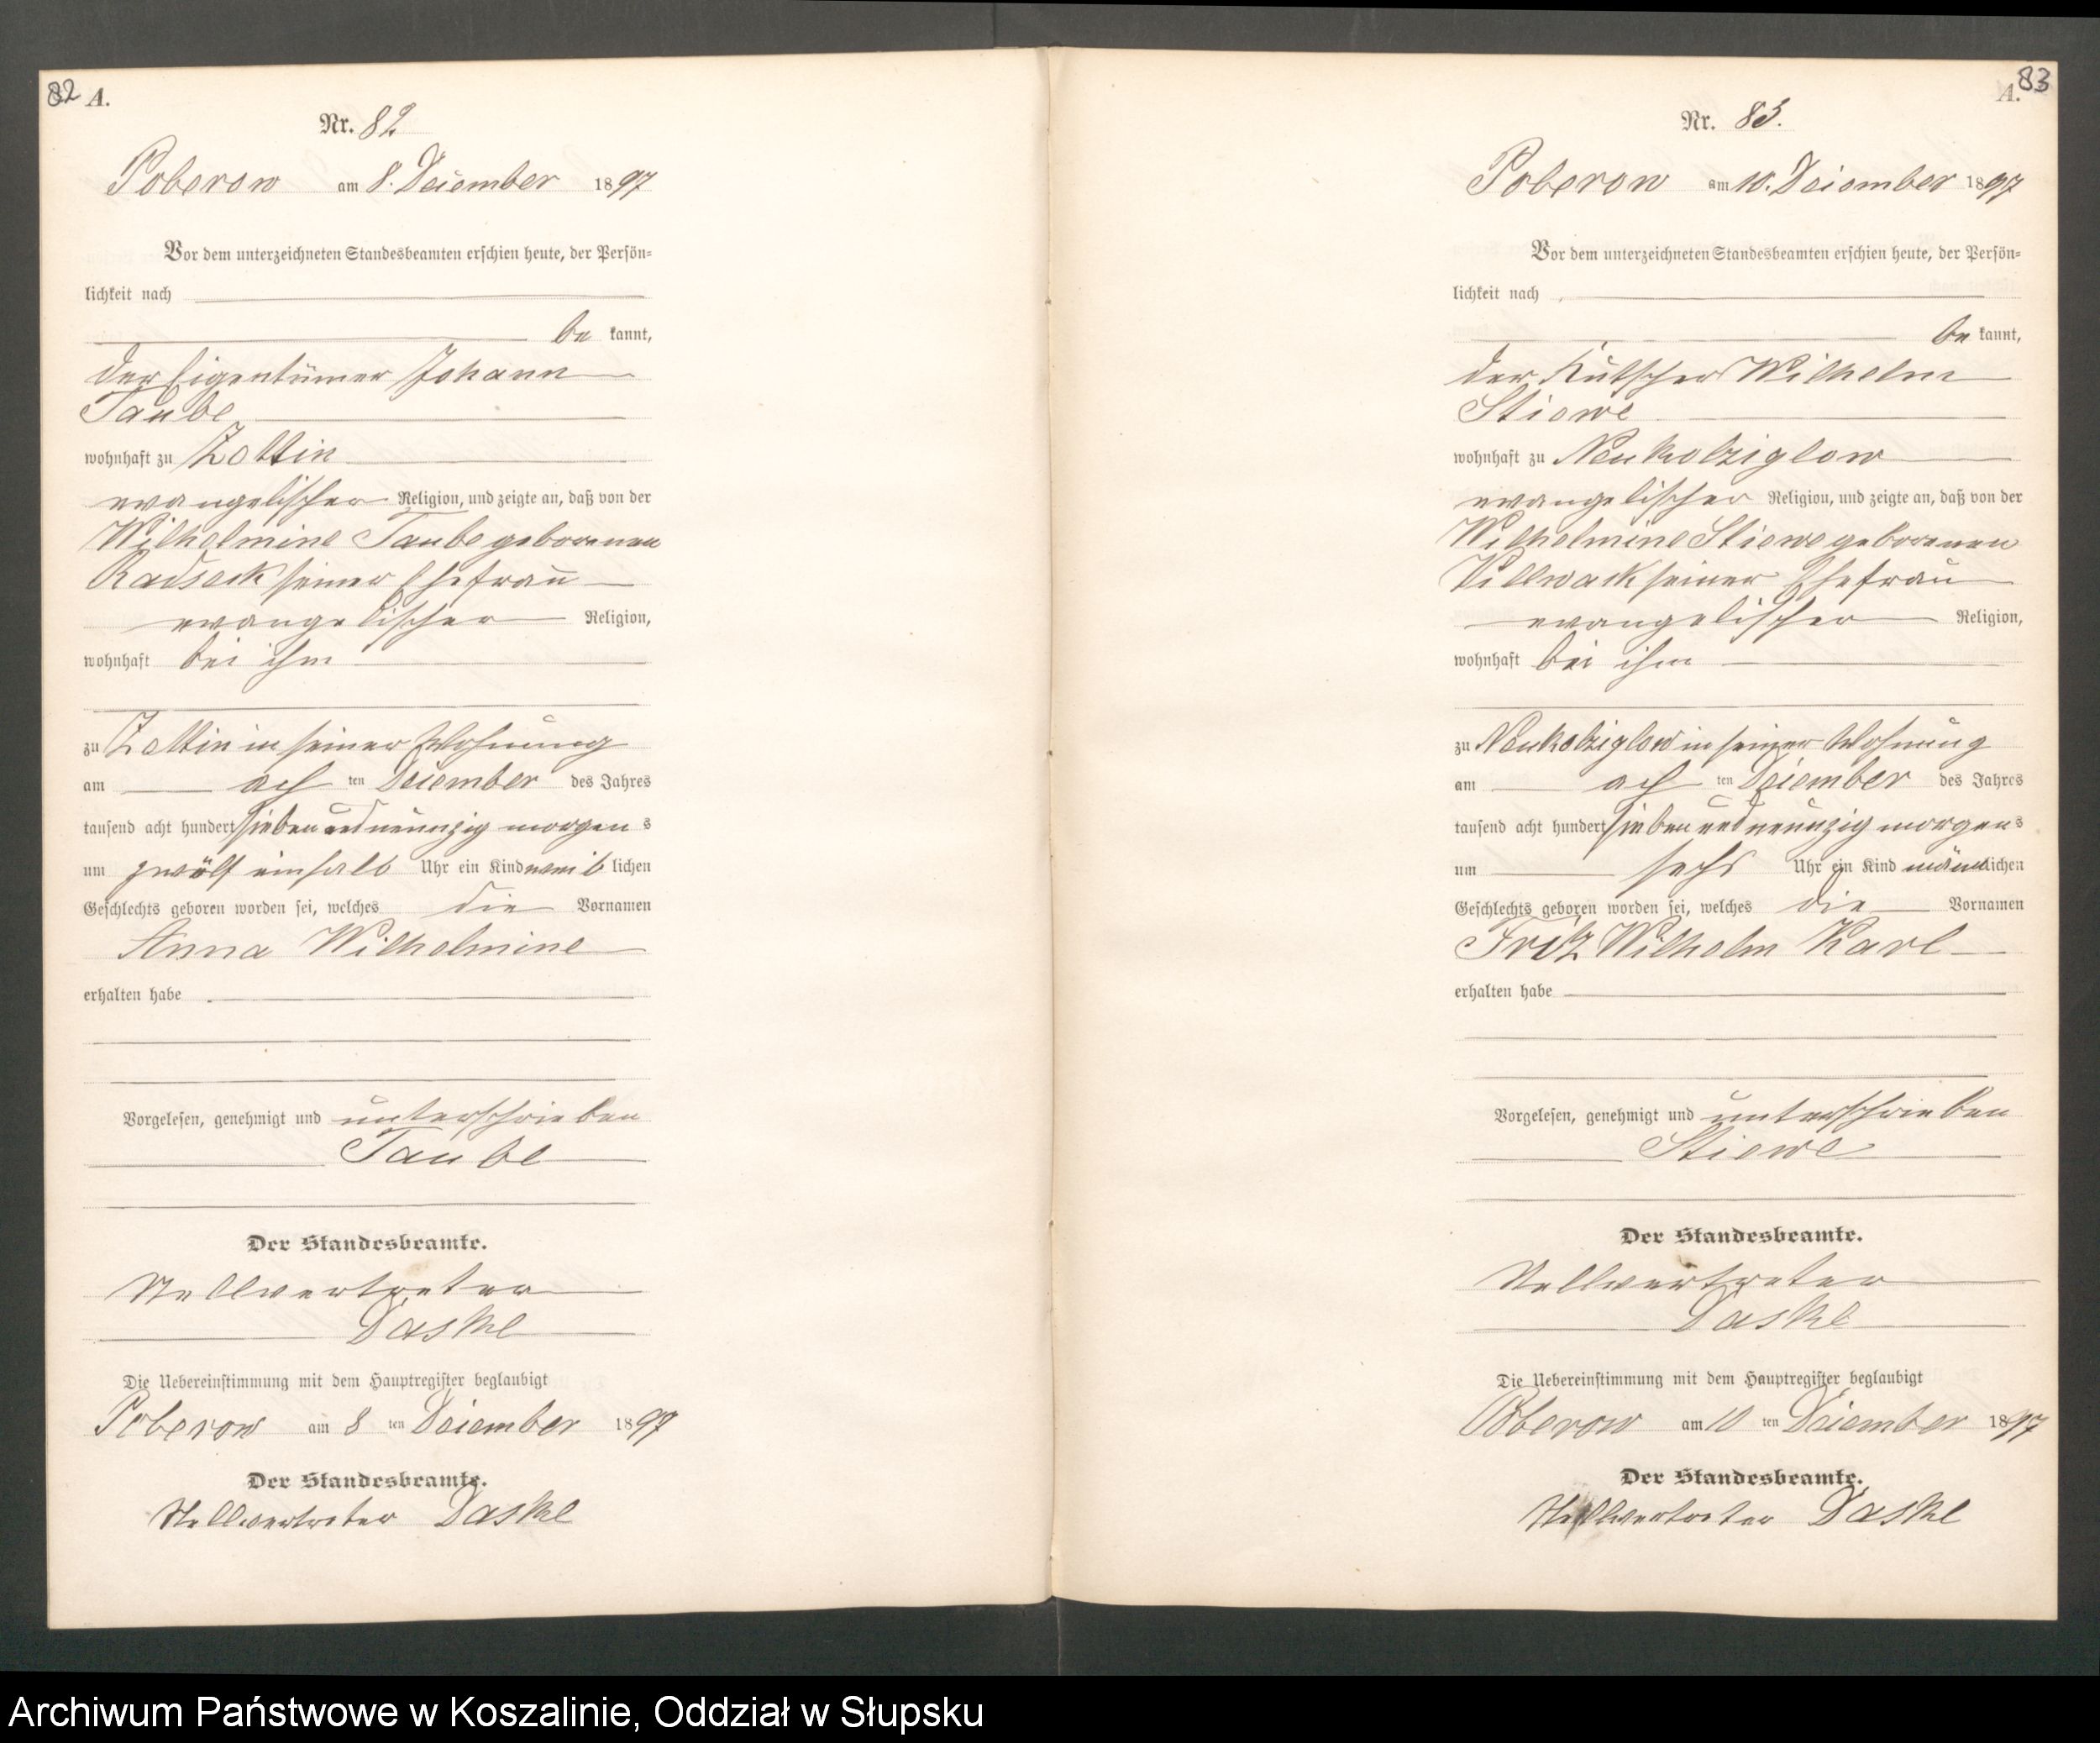 82 A.
Nr. 82
Poberow am 8. Dezember 1897
Vor dem unterzeichneten Standesbeamten erschien heute, der Persön-
lichkeit nach
be kannt,
der Eigentümer Johann
Taube
wohnhaft zu Zettin
evangelischer Religion, und zeigte an, daß von der
Wilhelmine Taube geborenen
Radseck seiner Ehefrau
evangelischer Religion,
wohnhaft bei ihm
zu Zettin in seiner Wohnung
am ach ten Dezember des Jahres
tausend acht hundert sieben und neunzig morgen s
um zwölf einhalb Uhr ein Kind weib lichen
Geschlechts geboren worden sei, welches die Vornamen
Anna Wilhelmine
erhalten habe
Vorgelesen, genehmigt und unterschrieben
Taube
Der Standesbeamte.
Stellvertreter
Daske
Die Uebereinstimmung mit dem Hauptregister beglaubigt
Poberow am 8 ten Dezember 1897
Der Standesbeamte.
Stellvertreter Daske
A. 83
Nr. 83.
Poberow am 10. Dezember 1897
Vor dem unterzeichneten Standesbeamten erschien heute, der Persön-
lichkeit nach
be kannt,
der Kutscher Wilhelm
Stiewe
wohnhaft zu Neukolziglow
evangelischer Religion, und zeigte an, daß von der
Wilhelmine Stiewe geborenen
Villwack seiner Ehefrau
evangelischer Religion,
wohnhaft bei ihm
zu Neukolziglow in seiner Wohnung
am ach ten Dezember des Jahres
tausend acht hundert sieben und neunzig morgens
um sechs Uhr ein Kind männlichen
Geschlechts geboren worden sei, welches die Vornamen
Fritz Wilhelm Karl
erhalten habe
Vorgelesen, genehmigt und unterschrieben
Stiewe
Der Standesbeamte.
Stellvertreter
Daske
Die Uebereinstimmung mit dem Hauptregister beglaubigt
Poberow am 10 ten Dezember 1897
Der Standesbeamte.
Stellvertreter Daske
Archiwum Państwowe w Koszalinie, Oddział w Słupsku